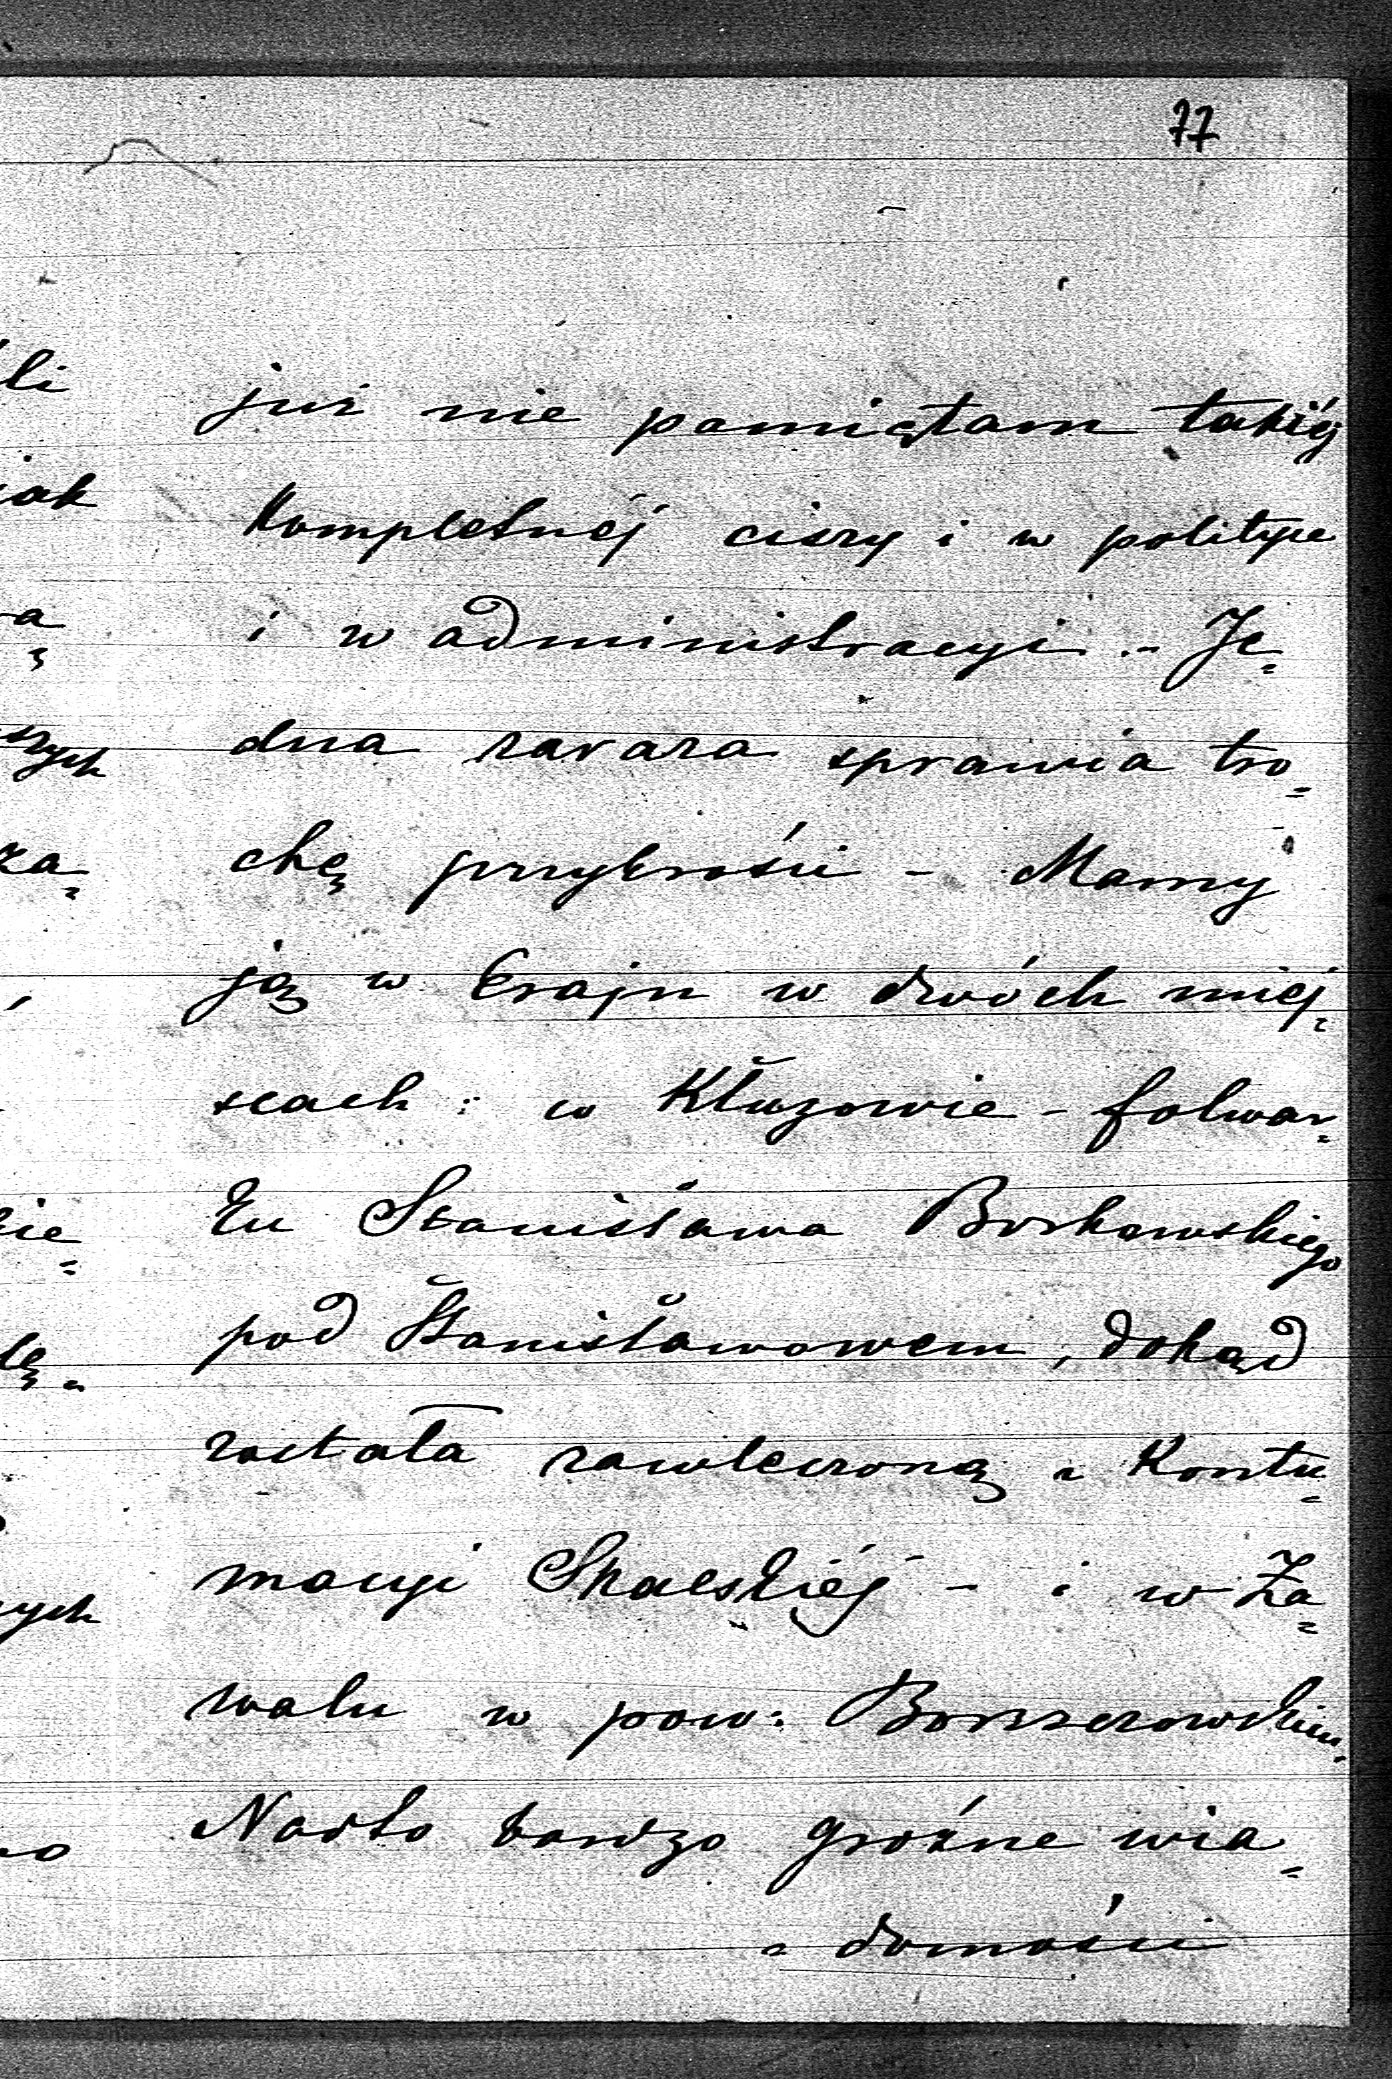 77
li
już nie pamiętam takiéj
jak
kompletnéj ciszy i w polityce
i w administracyi.. Je=
szych
dna zaraza sprawia tro=
chę przykrości - Mamy
ją w kraju w dwóch miéj=
scach: w Kłuzowie - folwar=
ku Stanisława Borkowskiego
pod Stanisławowem, dokąd
została zawleczoną z Kontu=
macyi Skalskiéj - i w Za=
walu w pow: Borszczowskim.
Nadto bardzo groźne wia=
domości